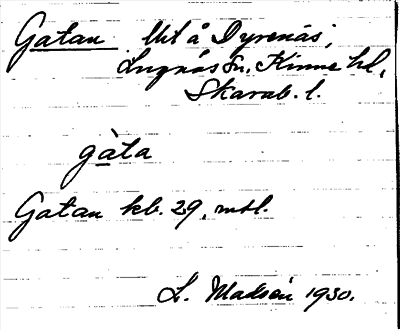 Gatan Utl å Dyrenäs,
Lugnås sn, Kinne hd,
Skarab. l.
gàta
Gatan kb. 29, mtl.
L. Madsén 1930.